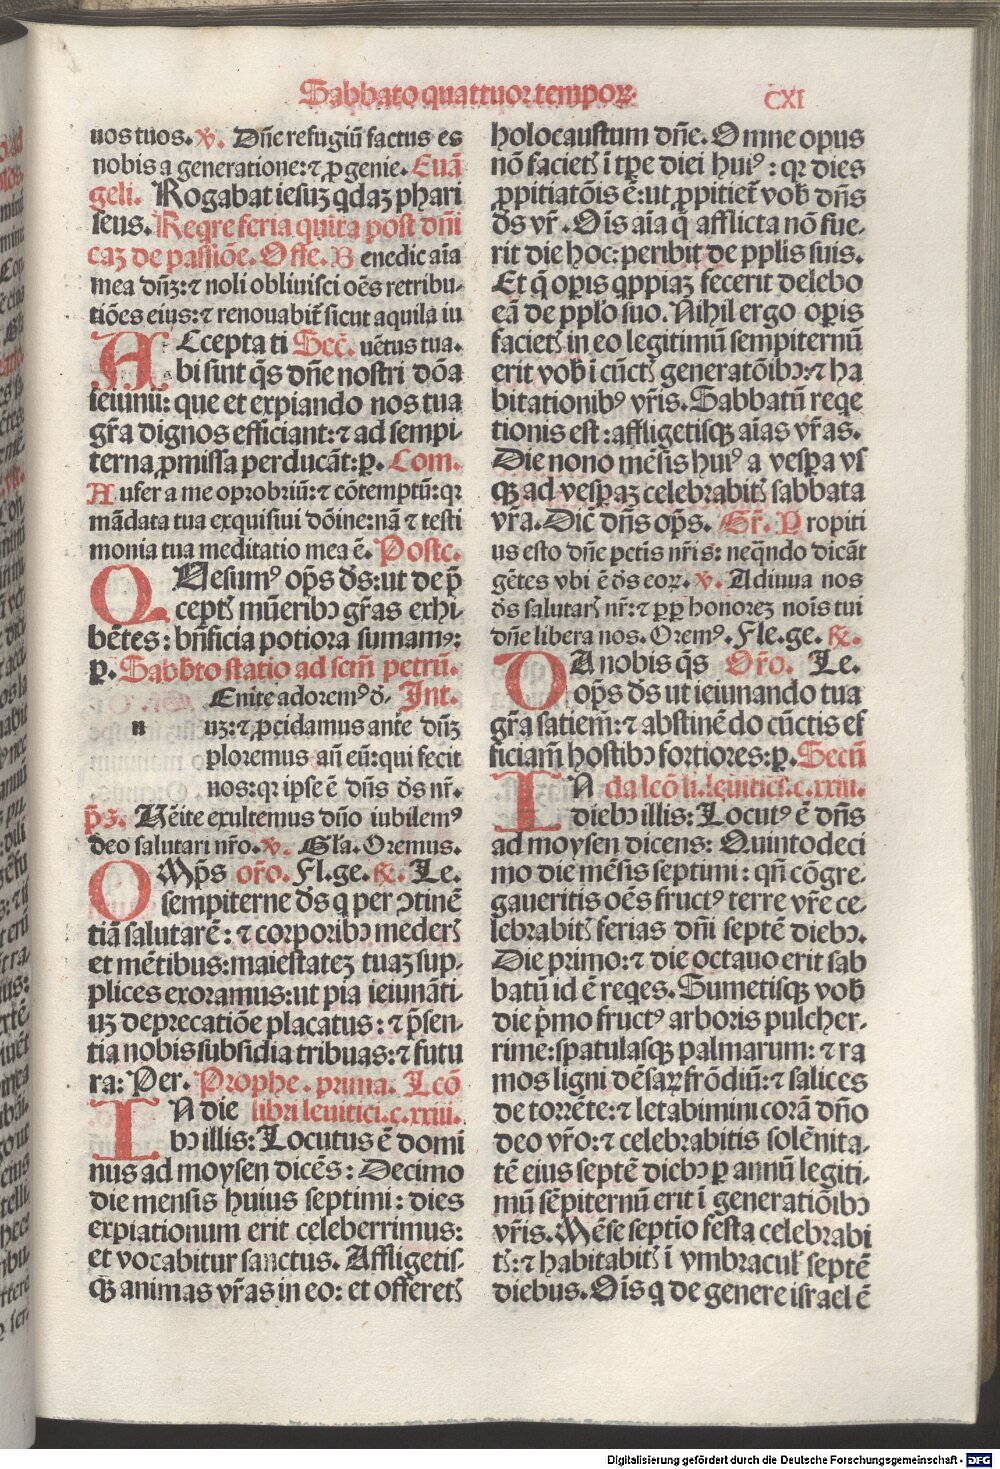 Sabbato quattuor tempoꝝ.
CXI
uos tuos. ℣. Dn̄e refugiū factus es
nobis a generatione: ⁊ ꝓgenie. Euā
geli. Rogabat iesuꝫ qdaꝫ phari
seus. Reqre feria quīta post dn̄i
caꝫ de passiōe. Offe. Benedic aīa
mea dn̄ꝫ: ⁊ noli obliuisci oēs retribu-
tiōes eius: ⁊ renouabit̄ sicut aquila iu
Accepta ti Sec̄. uētus tua.
bi sint q̄s dn̄e nostri dōa
ieiunii: que et expiando nos tua
gr̄a dignos efficiant: ⁊ ad sempi-
terna ꝓmissa perducāt: ꝑ. Com.
Aufer a me oprobriū: ⁊ cōtemptū: qꝛ
mādata tua exquisiui dōine: nā ⁊ testi
monia tua meditatio mea ē. Postc.
QUesumꝰ op̄s ds̄: ut de p̄
ceptꝭ mūeribꝫ gr̄as exhi-
bētes: bn̄ficia potiora sumamꝰ:
ꝑ. Sabb̄to statio ad sct̄m petrū.
Enite adoremꝰ d̄. Int.
n uꝫ: ⁊ ꝓcidamus ante dn̄ꝫ
ploremus an̄ eū: qui fecit
nos: qꝛ ipse ē dn̄s ds̄ nr̄.
p̄s. Uēite exultemus dn̄o iubilemꝰ
deo salutari nr̄o. ℣. Gla. Oremus.
OMp̄s or̄o. Fl. ge. ℟. Le.
sempiterne ds̄ q per ↄtinē
tiā salutarē: ⁊ corporibꝫ mederꝭ
et mētibus: maiestateꝫ tuaꝫ sup-
plices exoramus: ut pia ieiunāti-
uꝫ deprecatiōe placatus: ⁊ p̄sen-
tia nobis subsidia tribuas: ⁊ futu
ra: Per. Prophe. prima. Lcō
IN die libri leuitici. c. xxiii.
bꝫ illis: Locutus ē domi
nus ad moysen dicēs: Decimo
die mensis huius septimi: dies
expiationum erit celeberrimus:
et vocabitur sanctus. Affligetis-
qꝫ animas vr̄as in eo: et offeretꝭ
holocaustum dn̄e. Omne opus
nō facietꝭ ī tp̄e diei huiꝰ: qꝛ dies
ꝓpitiatōis ē: ut ꝓpitiet̄ vob̄ dn̄s
ds̄ vr̄. Oīs aīa q̄ afflicta nō fue-
rit die hoc: peribit de pplis suis.
Et q̄ opis qppiaꝫ fecerit delebo
eā de pplo suo. Nihil ergo opis
facietꝭ in eo legitimū sempiternū
erit vob̄ ī cūctꝭ generatōibꝫ: ⁊ ha
bitationibꝰ vr̄is. Sabbatū reqe
tionis est: affligetisqꝫ aīas vr̄as.
Die nono mēsis huiꝰ a vespa vs
qꝫ ad vespaꝫ celebrabitꝭ sabbata
vr̄a. Dic̄ dn̄s op̄s. Gr̄. Propiti
us esto dn̄e pctīs nr̄is: neqn̄do dicāt
gētes vbi ē ds̄ eoꝝ. ℣. Adiuua nos
ds̄ salutarꝭ nr̄: ⁊ ꝓp honoreꝫ noīs tui
dn̄e libera nos. Oremꝰ. Fle. ge. ℟.
DA nobis q̄s Or̄o. Le.
op̄s ds̄ ut ieiunando tua
gr̄a satiem̄: ⁊ abstinēdo cūctis ef
ficiam̄ hostibꝫ fortiores: ꝑ. Secū
IN da lcō li. leuitici. c. xxiii.
diebꝫ illis: Locutꝰ ē dn̄s
ad moysen dicens: Quintodeci
mo die mēsis septimi: qn̄ cōgre-
gaueritis oēs fructꝰ terre vr̄e ce-
lebrabitꝭ ferias dn̄i septē diebꝫ.
Die primo: ⁊ die octauo erit sab
batū id ē reqes. Sumetisqꝫ vob̄
die p̄mo fructꝰ arboris pulcher-
rime: spatulasqꝫ palmarum: ⁊ ra
mos ligni dēsaꝝ frōdiū: ⁊ salices
de torrēte: ⁊ letabimini corā dn̄o
deo vr̄o: ⁊ celebrabitis solēnita-
tē eius septē diebꝫ ꝑ annū legiti-
mū sēpiternū erit ī generatiōibꝫ
vr̄is. Mēse septīo festa celebrabi
tꝭ: ⁊ habitabitꝭ ī vmbraculꝭ septē
diebus. Oīs q de genere israel ē
Digitalisierung gefördert durch die Deutsche Forschungsgemeinschaft - DFG